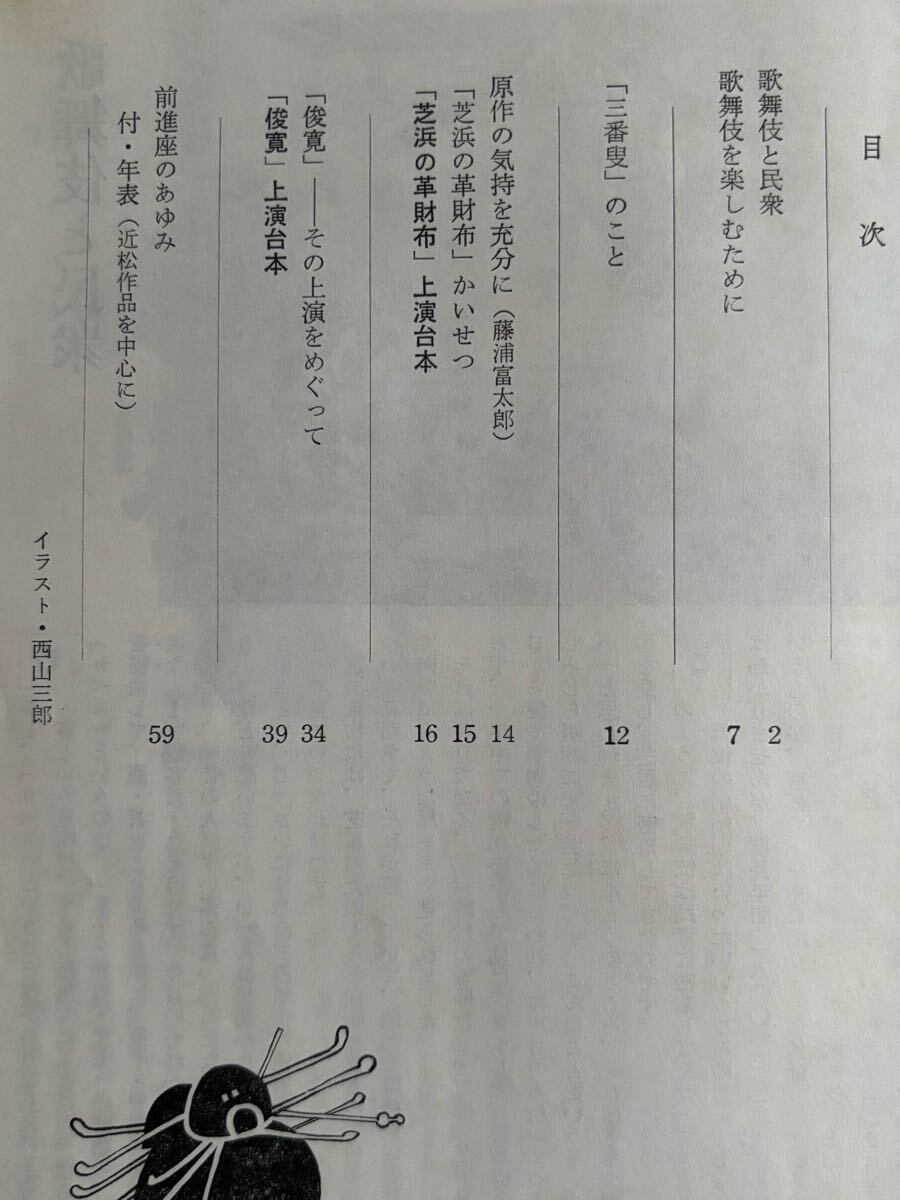 目次
歌舞伎と民衆 2
歌舞伎を楽しむために 7
「三番叟」のこと 12
原作の気持を充分に（藤浦富太郎） 14
「芝浜の革財布」かいせつ 15
「芝浜の革財布」上演台本 16
「俊寛」――その上演をめぐって 34
「俊寛」上演台本 39
前進座のあゆみ 59
付・年表（近松作品を中心に）
イラスト・西山三郎